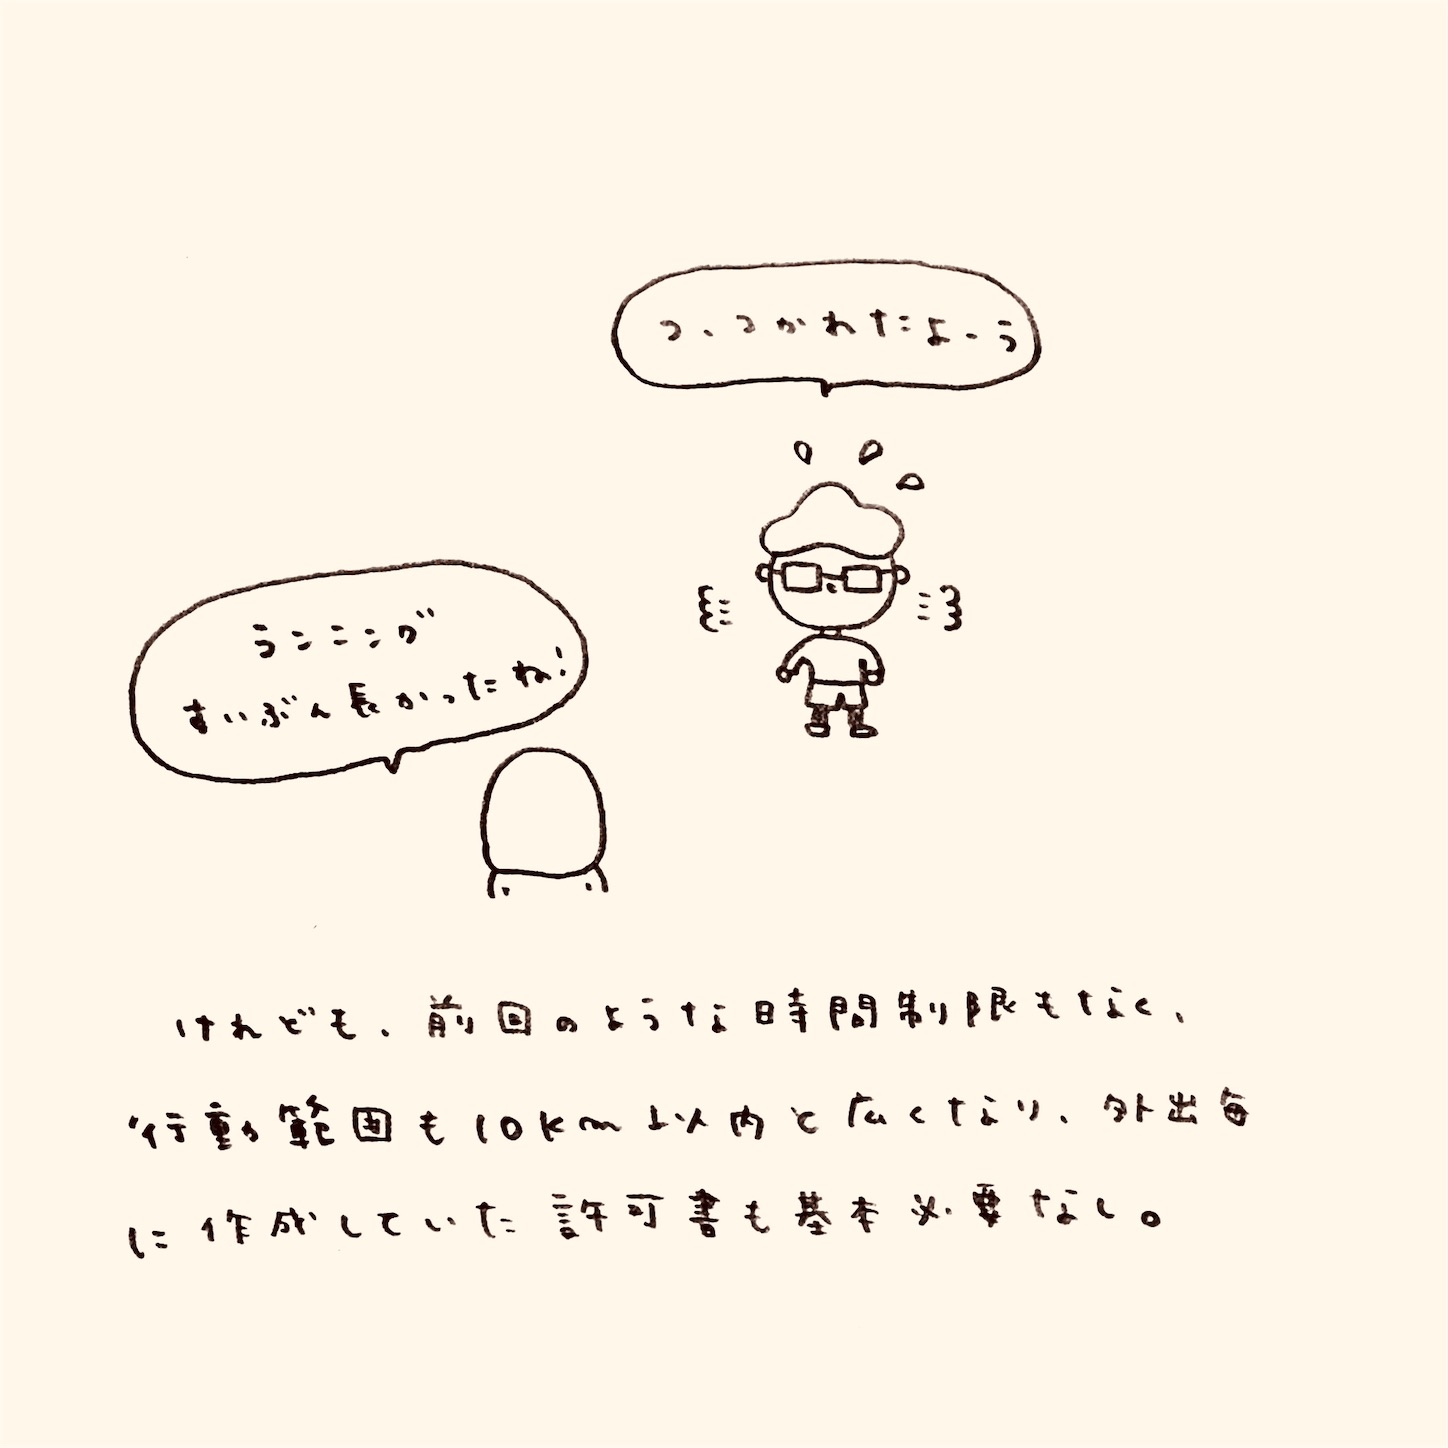 つ、つかれたよーう
ランニング
すいぶん長かったね!
けれども、前回のような時間制限もなく、
行動範囲も10km以内と広くなり、外出毎
に作成していた許可書も基本必要なし。